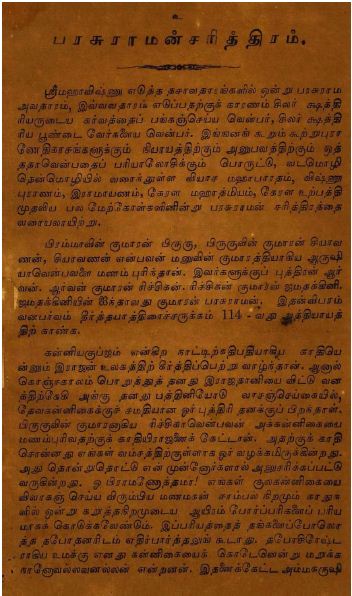 உ
பரசுராமன்சரித்திரம்.
ஸ்ரீமஹாவிஷ்ணு எடுத்த தசாவதாரங்களில் ஒன்று பரசுராம
அவதாரம், இவ்வவதாரம் எடுப்பதற்குக் காரணம் சிலர் க்ஷத்தி
ரியருடைய கர்வத்தைப் பங்கஞ்செய்ய வென்பர், சிலர் க்ஷத்தி
ரிய பூண்டை வேர்களைய வென்பர். இங்ஙனங் கூறும் கூற்றுபுரா
ணேதிகாசங்களுக்கும் நியாயத்திற்கும் அனுபவத்திற்கும் ஒத்
ததாவென்பதைப் பரியாலோசிக்கும் பொருட்டு, வடமொழி
தென்மொழியில் வரைந்துள்ள வியாச மஹாபாரதம், விஷ்ணு
புராணம், இராமாயணம், கேரள மஹாத்மியம், கேரள உற்பத்தி
முதலிய பல மேற்கோள்களினின்று பரசுராமன் சரித்திரத்தை
வரையலாயிற்று.
பிரம்மாவின் குமாரன் பிருகு, பிருகுவின் குமாரன் சியாவ
ணன், சியாவணன் என்பவன் மனுவின் குமாரத்தியாகிய ஆருஷி
யாவென்பவளை மணம் புரிந்தான். இவர்களுக்குப் புத்திரன் ஆர்
வன். ஆர்வன் குமாரன் ரிச்சிகன். ரிச்சிகன் குமாரன் ஜமதக்கினி.
ஜமதக்கினியின் ஐந்தாவது குமாரன் பரசுராமன். இதன்விபரம்
வனபர்வம் தீர்த்தயாத்திரைச்சருக்கம் 114 - வது அத்தியாயத்
திற் காண்க.
கன்னியகுப்ஜம் என்கிற நாட்டிற்கதிபதியாகிய காதியெ
ன்னும் இராஜன் உலகத்திற் கீர்த்திப்பெற்று வாழ்ந்தான். ஆனால்
கொஞ்சகாலம் பொறுத்துத் தனது இராஜதானியை விட்டு வன
த்திற்கேகி அங்கு தனது பத்தினியோடு வாசஞ்செய்கையில்,
தேவகன்னிகைக்குச் சமதியான ஓர் புத்திரி தனக்குப் பிறந்தாள்.
பிருகுவின் குமாரனாகிய ரிச்சிகாவென்பவன் அக்கன்னிகையை
மணம்புரிவதற்குக் காதியிராஜனைக் கேட்டான். அதற்குக் காதி
சொன்னது எங்கள் வம்சத்திற்குள்ளாக ஓர் வழக்கமிருக்கின்றது.
அது தொன்றுதொட்டு என் முன்னோர்களால் அனுசரிக்கப்பட்டு
வருகின்றது. ஓ பிராமணோத்தமா! எங்கள் குலகன்னிகையை
விவாகஞ் செய்ய விரும்பிய மணமகன் சாம்பல் நிறமும் காதுக
ளில் ஒன்று கறுத்தநிறமுடைய ஆயிரம் போர்ப்பரிகளைப் பரிய
மாகக் கொடுக்கவேண்டும். இப்பரியத்தைத் தங்களைப்போலொ
த்த தபோதனரிடம் எதிர்பார்த்தலுங் கூடாது. தபோசிரேஷ்ட
ராகிய உமக்கு எனது கன்னிகையைக் கொடேனென்று மறுக்க
நானேவல்லவனல்லன் என்றனன். இதனைக்கேட்ட அம்மகருஷி